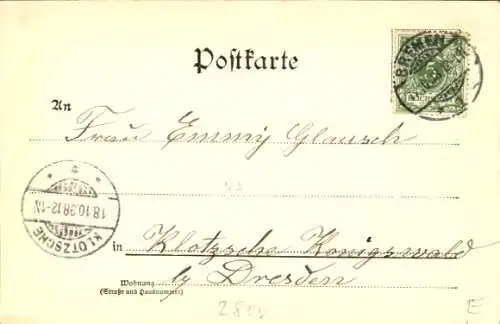 Postkarte
BREMEN
An
Frau Emmy Glausch
KLOTZSCHE
18.10.98.12-1N.
in Klotzsche Königswald
by Dresden
Wohnung
(Straße und Hausnummer)
E